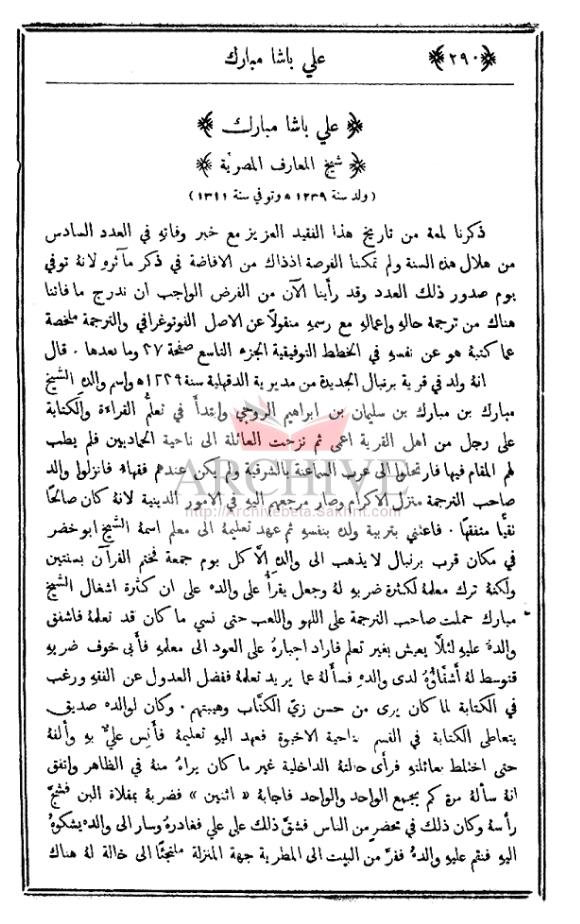 ﴿٢٩٠﴾ علي باشا مبارك
﴿ علي باشا مبارك ﴾
﴿ شيخ المعارف المصرية ﴾
( ولد سنة ١٢٣٩ ه وتوفي سنة ١٣١١ )
ذكرنا لمعة من تاريخ هذا الفقيد العزيز مع خبر وفاته في العدد السادس
من هلال هذه السنة ولم تمكنا الفرصة اذذاك من الافاضة في ذكر مآثره لانه توفي
يوم صدور ذلك العدد وقد رأينا الآن من الفرض الواجب ان ندرج ما فاتنا
هناك من ترجمة حاله واعماله مع رسمه منقولاً عن الاصل الفوتوغرافي والترجمة ملخصة
عما كتبه هو عن نفسه في الخطط التوفيقية الجزء التاسع صفحة ٢٧ وما بعدها . قال
انه ولد في قرية برنبال الجديدة من مديرية الدقهلية سنة ١٢٣٩ه واسم والده الشيخ
مبارك بن مبارك بن سليمان بن ابراهيم الروجي وابتدأ في تعلم القراءة والكتابة
على رجل من اهل القرية اعمى ثم نزحت العائلة الى ناحية الحماديين فلم يطب
لهم المقام فيها فارتحلوا الى عرب السماعنة بالشرقية ولم يكن عندهم فقهاء فانزلوا والد
صاحب الترجمة منزل الاكرام وصار مرجعهم اليه في الامور الدينية لانه كان صالحًا
تقيًا متفقهًا . فاعتنى بتربية ولده بنفسه ثم عهد تعليمه الى معلم اسمه الشيخ ابو خضر
في مكان قرب برنبال لا يذهب الى والده إلّا كل يوم جمعة فختم القرآن بسنتين
ولكنه ترك معلمه لكثرة ضربه له وجعل يقرأ على والده على ان كثرة اشغال الشيخ
مبارك حملت صاحب الترجمة على اللهو واللعب حتى نسي ما كان قد تعلمه فاشفق
والده عليه لئلّا يعيش بغير تعلم فاراد اجباره على العود الى معلمه فأبى خوف ضربه
فتوسط له أشقّاؤه لدى والده فسأله عما يريد تعلمه ففضل العدول عن الفقه ورغب
في الكتابة لما كان يرى من حسن زيّ الكتّاب وهيبتهم . وكان لوالده صديق
يتعاطى الكتابة في القسم بناحية الاخيوة فعهد اليه تعليمه فأنِس عليٌّ به وألفه
حتى اختلط بعائلته فرأى حالته الداخلية غير ما كان يراه منه في الظاهر واتفق
انه سأله مرة كم يجمع الواحد والواحد فاجابه « اثنين » فضربه بمقلاة البن فشجّ
رأسه وكان ذلك في محضر من الناس فشقّ ذلك على علي فغادره وسار الى والده يشكوه
اليه فنقم عليه والده ففرّ من البيت الى المطرية جهة المنزلة ملتجئًا الى خالة له هناك
ARCHIVE
http://Archivebeta.Sakhrit.com